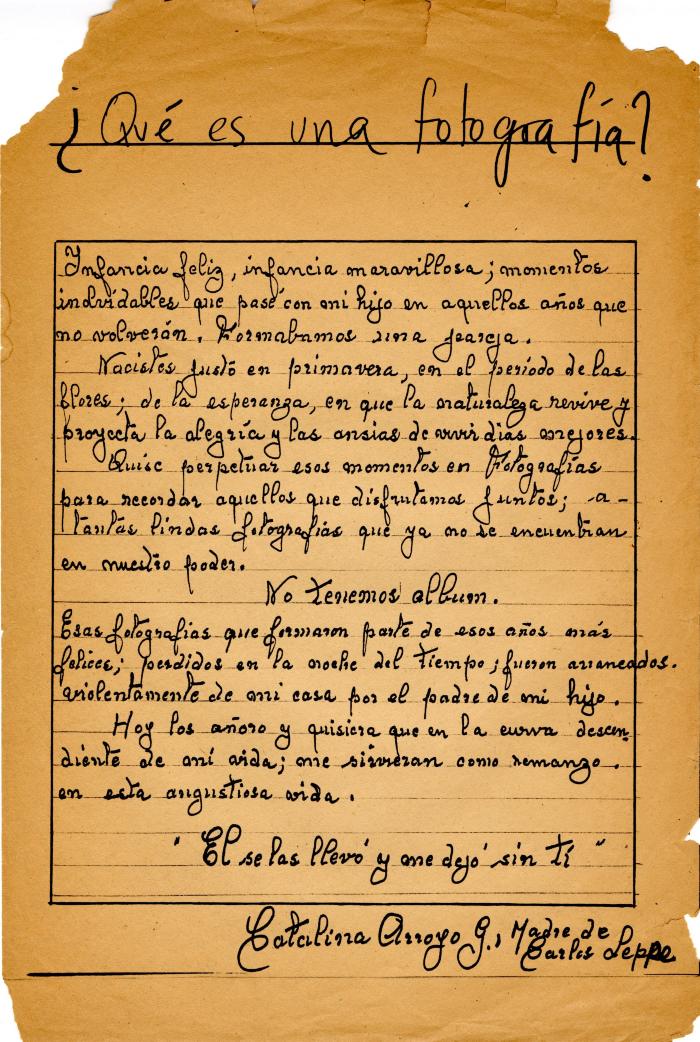 ¿Qué es una fotografía?
Infancia feliz, infancia maravillosa; momentos
indvidables que pasé con mi hijo en aquellos años que
no volverán. Formabamos una pareja.
Nacistes justo en primavera, en el período de las
flores; de la esperanza, en que la naturaleza revive y
proyecta la alegría y las ansias de vivir dias mejores.
Quise perpetuar esos momentos en Fotografías
para recordar aquellos que disfrutamos juntos; -a-
tantas lindas fotografías que ya no se encuentran
en nuestro poder.
No tenemos album.
Esas fotografías que formaron parte de esos años más
felices; perdidos en la noche del tiempo; fueron arrancados.
violentamente de mi casa por el padre de mi hijo.
Hoy los añoro y quisiera que en la curva descen-
diente de mi vida; me sirvieran como remanzo.
en esta angustiosa vida.
"El se las llevó y me dejó sin tí"
Catalina Arroyo G., Madre de
Carlos Leppe